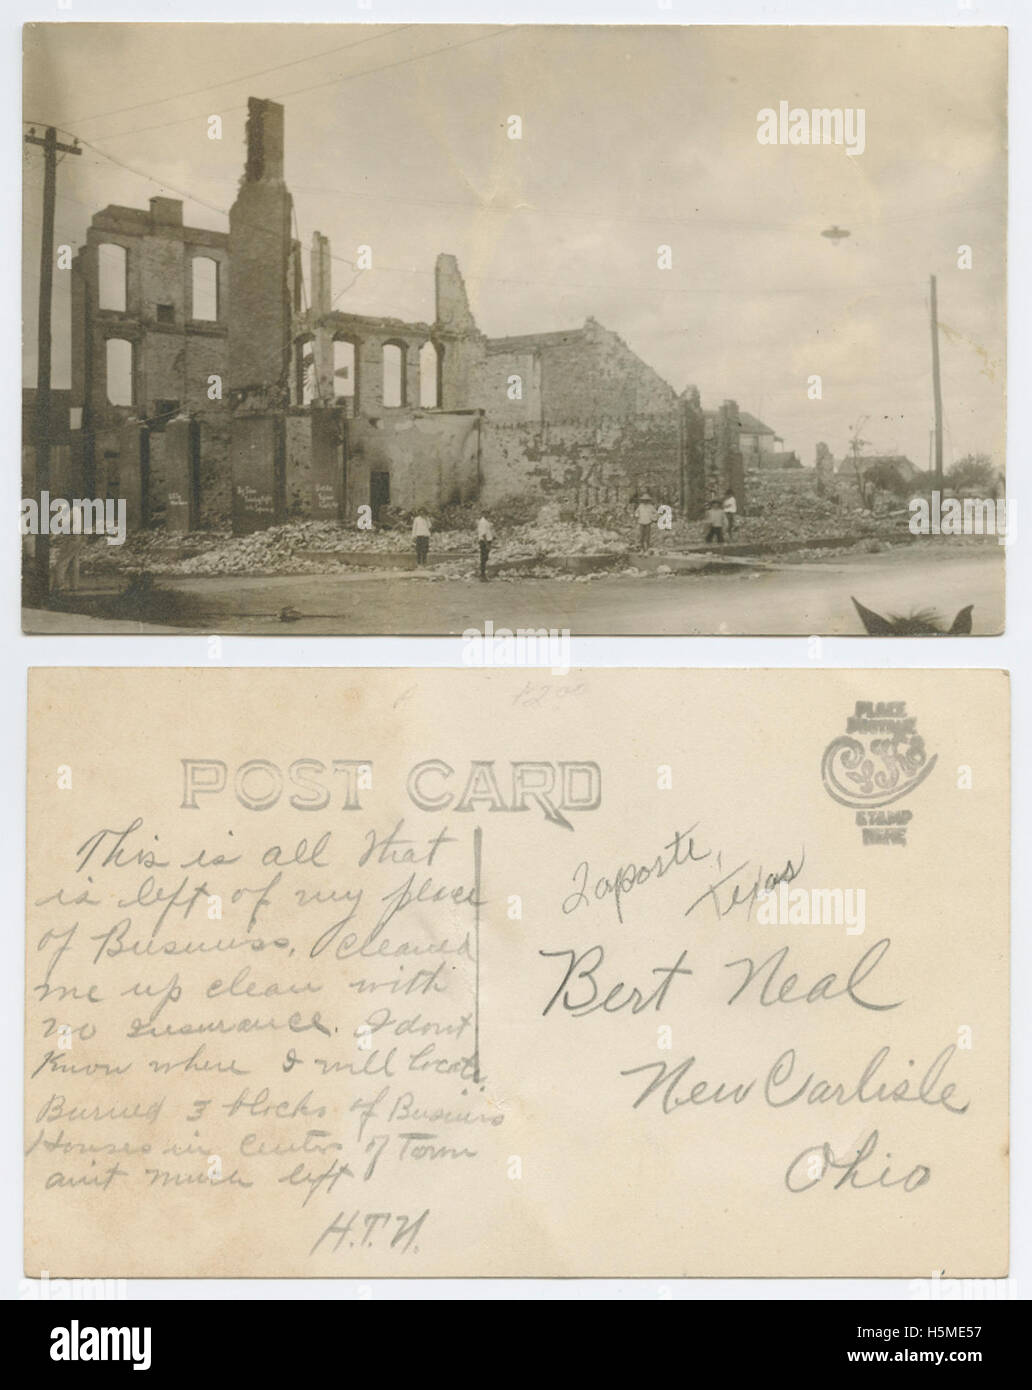 POST CARD
PLACE
POSTAGE
STAMP
HERE
This is all that
is left of my place
of Business, cleaned
me up clean with
no insurance. I dont
Know where I will locate
Burned 3 blocks of Business
Houses in Center of Town
aint much left
H.T.N.
Laporte,
Texas
Bert Neal
New Carlisle
Ohio
alamy stock photo
alamy
H5ME57
www.alamy.com